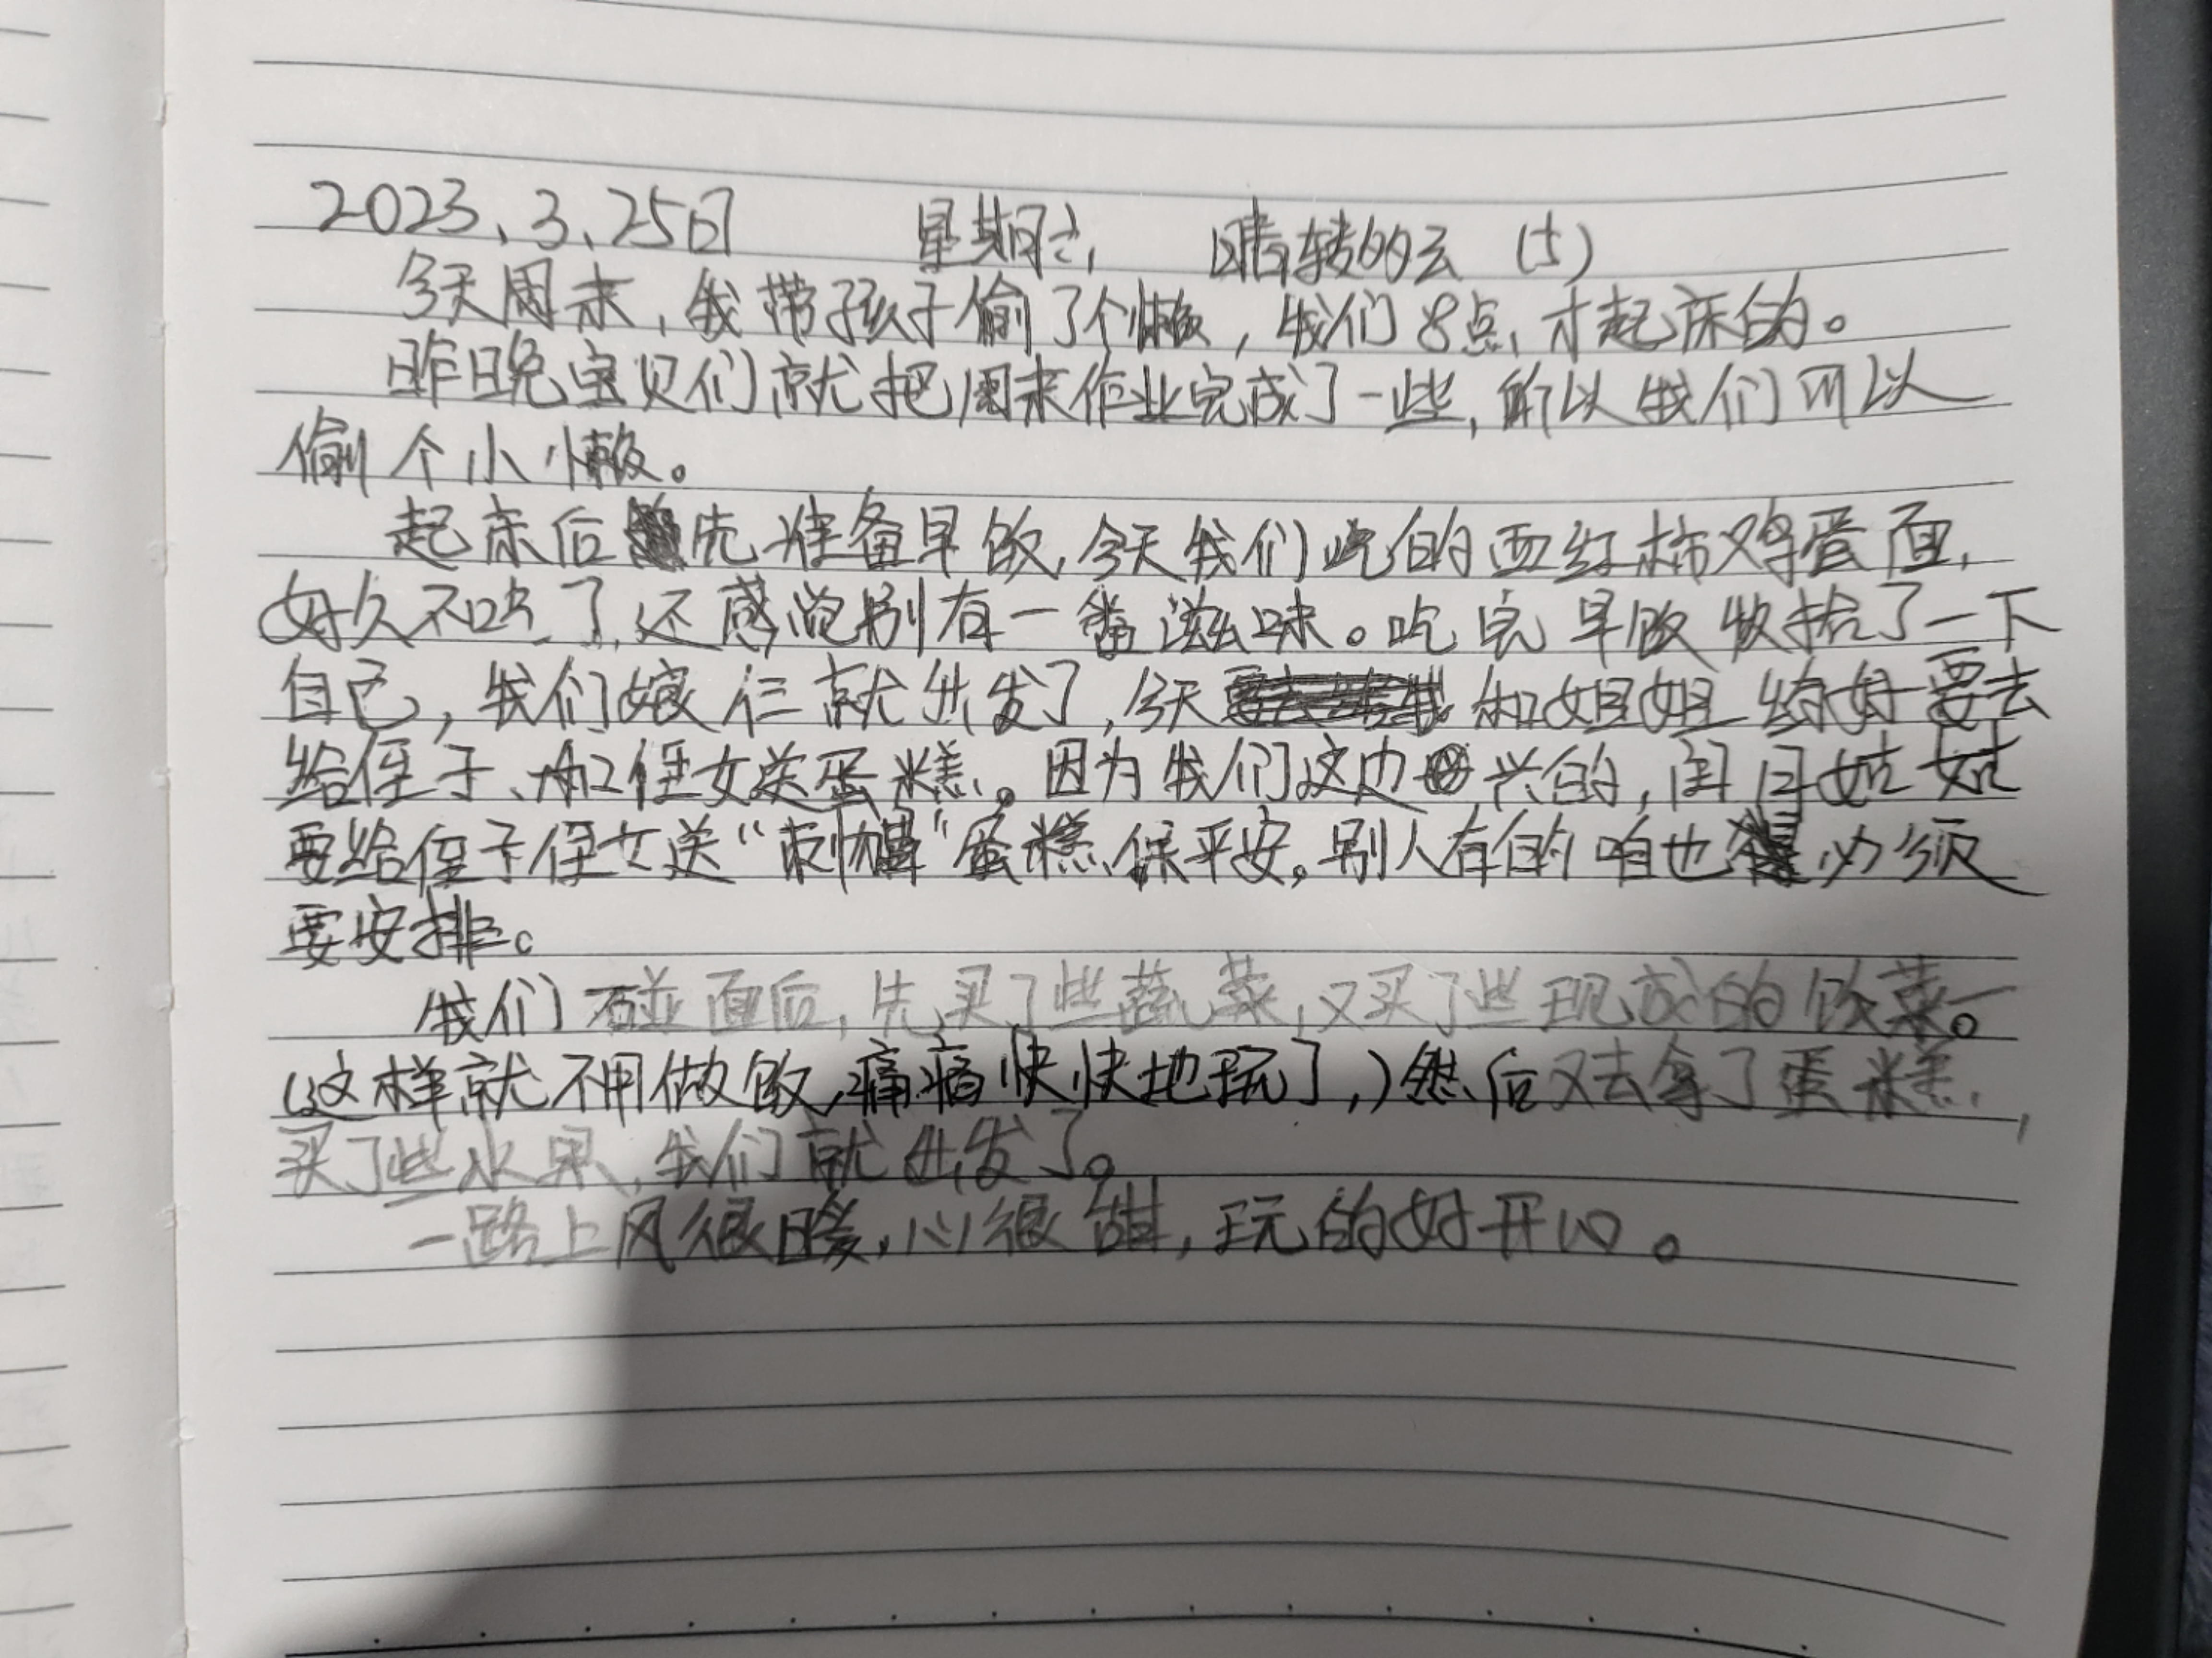 2023、3、25日 星期六 晴转多云 (5)
今天周末，我带孩子偷了个懒，我们8点才起床的。
昨晚宝贝们就把周末作业完成了一些，所以我们可以
偷个小懒。
起床后先准备早饭，今天我们吃的西红柿鸡蛋面，
好久不吃了，还感觉别有一番滋味。吃完早饭收拾了一下
自己，我们娘仨就出发了，今天和姐姐约好要去
给侄子、和侄女送蛋糕。因为我们这边兴的，闰月姑姑
要给侄子侄女送“刺猬”蛋糕保平安。别人有的咱也必须
要安排。
我们碰面后，先买了些蔬菜，又买了些现成的饭菜。
（这样就不用做饭，痛痛快快地玩了，）然后又去拿了蛋糕，
买了些水果，我们就出发了。
一路上风很暖，心很甜，玩的好开心。